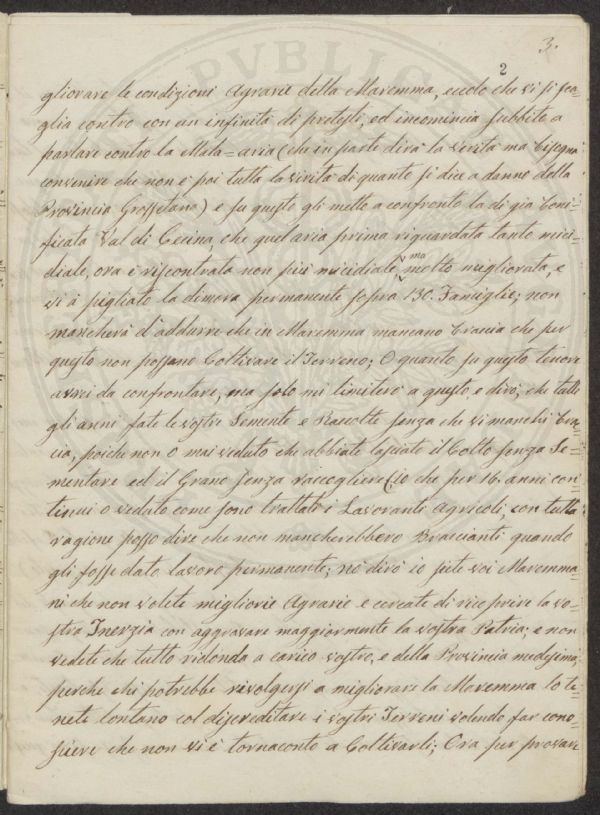 PVBLIC
3.
2
gliorare le condizioni Agrarie della Maremma, eccolo che vi si sca=
glia contro con un infinità di pretesti, ed incomincia subbito a
parlare contro la Mala=aria (che in parte dirà la verità ma bisogna
convenire che non è poi tutta la virità di quanto si dice a danno della
Provincia Grossetana) e su questo gli metto a confronto la di già boni=
ficata Val di Cecina, che quel aria prima riguardata tanto mici=
diale, ora è riscontrata non più micidiale, ma molto migliorata, e
vi à pigliato la dimora permanente sopra 130. Famiglie; non
mancherà d'addurre che in Maremma mancano braccia che per
questo non possano Coltivare il Terreno; O quanto su questo tenore
avrei da confrontare, ma solo mi limiterò a questo e dirò; che tutti
gli anni fate le vostre Semente e Raccolte senza che vi manchi bra=
cia, poiche non o mai veduto che abbiate lasciato il Colto senza Se=
mentare ed il Grano senza raccogliere (io che per 16. anni con
tinui o veduto come sono trattati i Lavoranti Agricoli, con tutta
ragione posso dire che non mancherebbero Braccianti quando
gli fosse dato lavoro permanente; nò dirò io siete voi Maremma=
ni che non volete migliorie Agrarie e cercate di ricoprire la vo=
stra Inerzia con aggravare maggiormente la vostra Patria; e non
vedete che tutto ridonda a carico vostro, e della Provincia medesima,
perche chi potrebbe rivolgersi a migliorare la Maremma lo te=
nete lontano col discreditare i vostri Terreni volendo far cono=
sciere che non vi è tornaconto a Coltivarli; Ora per provare